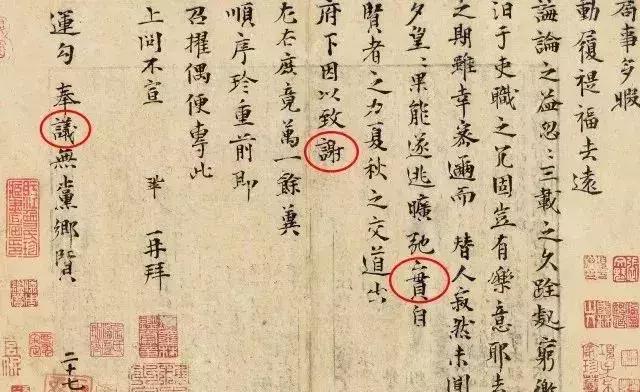 局事多暇
動履禔福去遠
誨論之益忽〻三載之久跧處窮徼
汩于吏職之冗固豈有樂意耶去
之期雖幸密邇而替人寂然未聞
夕望〻果能遂逃曠弛實自
賢者之力夏秋之交道出
府下因以致謝
左右庶竟萬一餘冀
順序珍重前即
召擢偶便專此
上問不宣 鞏 再拜
運勾 奉議無黨鄉賢 二十七